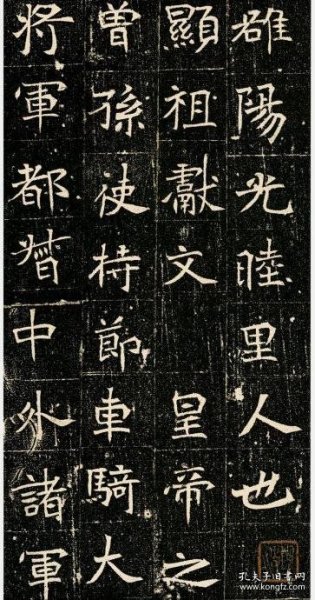 雒陽光睦里人也
顯祖獻文皇帝之
曾孫使持節車騎大
將軍都督中外諸軍
孔夫子旧书网
www.kongfz.com